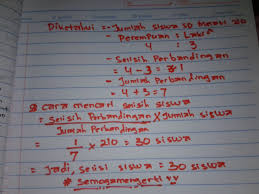 Diketahui = - Jumlah siswa SD Merbi 210
- Perempuan : Laki²
4 : 3
- Selisih Perbandingan
= 4 - 3 = 1
- Jumlah Perbandingan
= 4 + 3 = 7
Cara mencari selisih siswa
= Selisih Perbandingan x Jumlah siswa
Jumlah Perbandingan
= 1/7 x 210 = 30 siswa
= Jadi, selisi siswa = 30 siswa
* Semoga mengerti